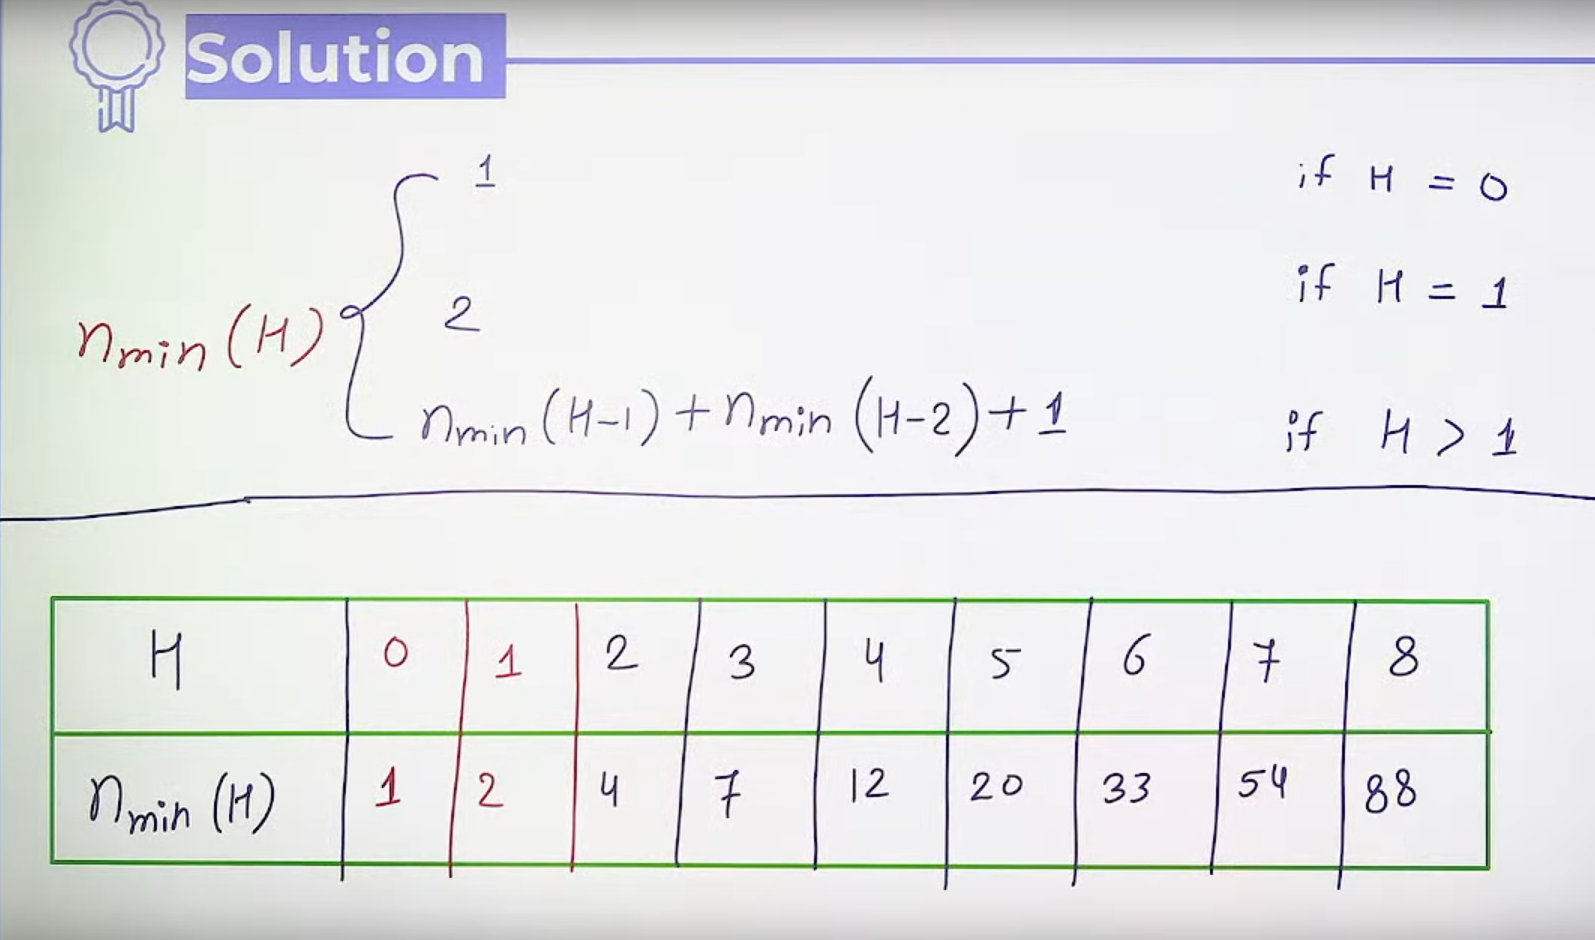 Solution
1 if H = 0
2 if H = 1
nmin (H)
nmin (H-1) + nmin (H-2) + 1 if H > 1
H 0 1 2 3 4 5 6 7 8
nmin (H) 1 2 4 7 12 20 33 54 88